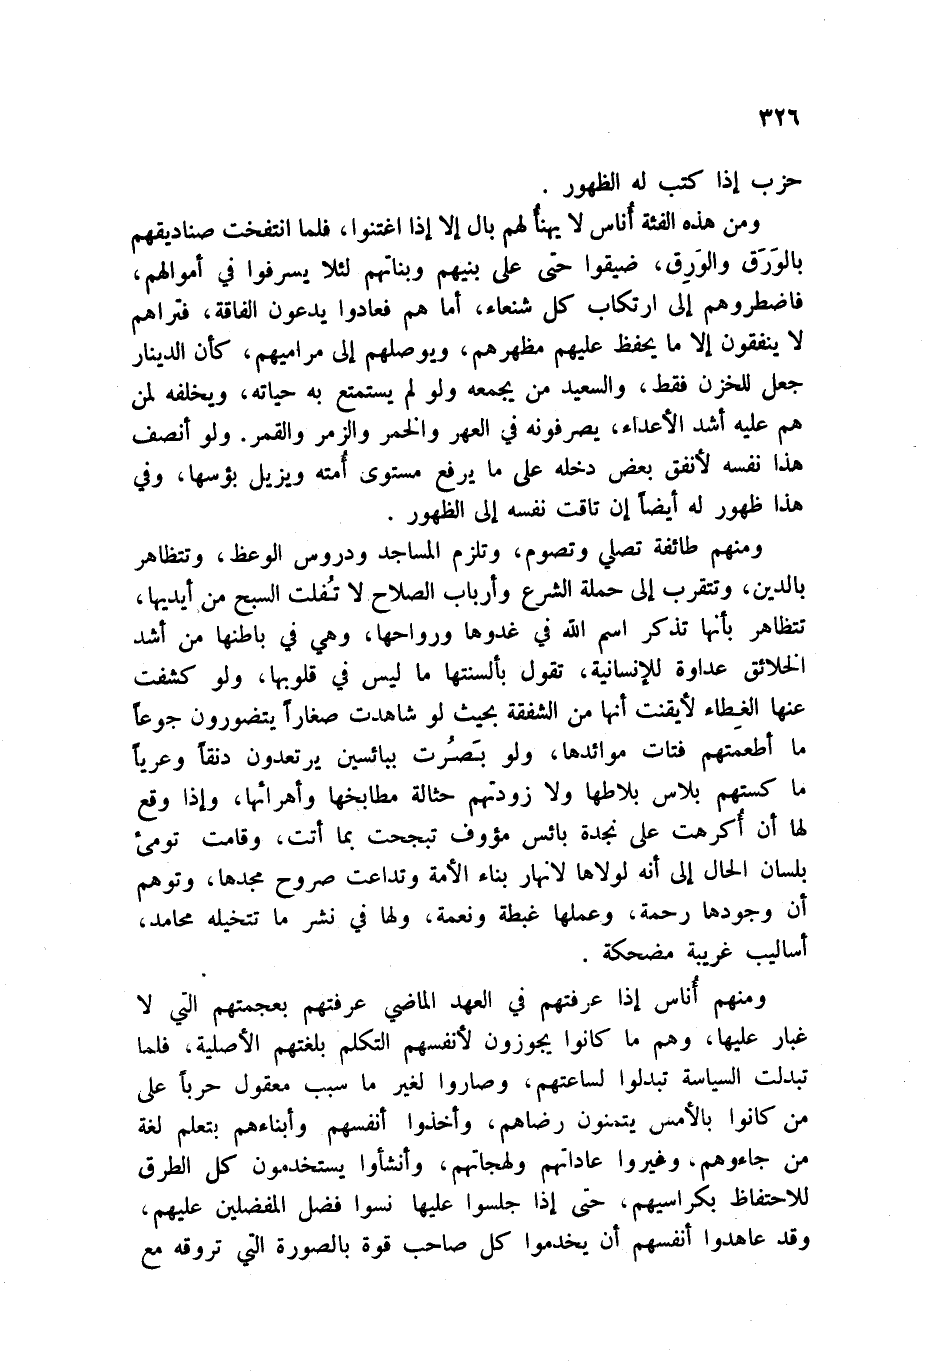 ٣٢٦
حزب إذا كتب له الظهور .
ومن هذه الفئة أُناس لا يهنأُ لهم بال إلا إذا اغتنوا، فلما انتفخت صناديقهم
بالوَرَق والوَرِق، ضيقوا حتى على بنيهم وبناتهم لئلا يسرفوا في أموالهم،
فاضطروهم إلى ارتكاب كل شنعاء، أما هم فعادوا يدعون الفاقة، فتراهم
لا ينفقون إلا ما يحفظ عليهم مظهرهم، ويوصلهم إلى مراميهم، كأن الدينار
جعل للخزن فقط، والسعيد من يجمعه ولو لم يستمتع به حياته، ويخلفه لمن
هم عليه أشد الأعداء، يصرفونه في العهر والخمر والزمر والقمر. ولو أنصف
هذا نفسه لأنفق بعض دخله على ما يرفع مستوى أُمته ويزيل بؤسها، وفي
هذا ظهور له أيضاً إن تاقت نفسه إلى الظهور .
ومنهم طائفة تصلي وتصوم، وتلزم المساجد ودروس الوعظ، وتتظاهر
بالدين، وتتقرب إلى حملة الشرع وأرباب الصلاح لا تُفلت السبح من أيديها،
تتظاهر بأنها تذكر اسم الله في غدوها ورواحها، وهي في باطنها من أشد
الخلائق عداوة للإنسانية، تقول بألسنتها ما ليس في قلوبها، ولو كشفت
عنها الغِطاء لأيقنت أنها من الشفقة بحيث لو شاهدت صغاراً يتضورون جوعاً
ما أطعمتهم فتات موائدها، ولو بَصُرت ببائسين يرتعدون دنقاً وعرياً
ما كستهم بلاس بلاطها ولا زودتهم حثالة مطابخها وأهرائها، وإذا وقع
لها أن أُكرهت على نجدة بائس مؤوف تبجحت بما أتت، وقامت تومئ
بلسان الحال إلى أنه لولاها لانهار بناء الأمة وتداعت صروح مجدها، وتوهم
أن وجودها رحمة، وعملها غبطة ونعمة، ولها في نشر ما تتخيله محامد،
أساليب غريبة مضحكة .
ومنهم أُناس إذا عرفتهم في العهد الماضي عرفتهم بعجمتهم التي لا
غبار عليها، وهم ما كانوا يجوزون لأنفسهم التكلم بلغتهم الأصلية، فلما
تبدلت السياسة تبدلوا لساعتهم، وصاروا لغير ما سبب معقول حرباً على
من كانوا بالأمس يتمنون رضاهم، وأخذوا أنفسهم وأبناءهم بتعلم لغة
من جاءوهم. وغيروا عاداتهم ولهجاتهم، وأنشأوا يستخدمون كل الطرق
للاحتفاظ بكراسيهم، حتى إذا جلسوا عليها نسوا فضل المفضلين عليهم،
وقد عاهدوا أنفسهم أن يخدموا كل صاحب قوة بالصورة التي تروقه مع